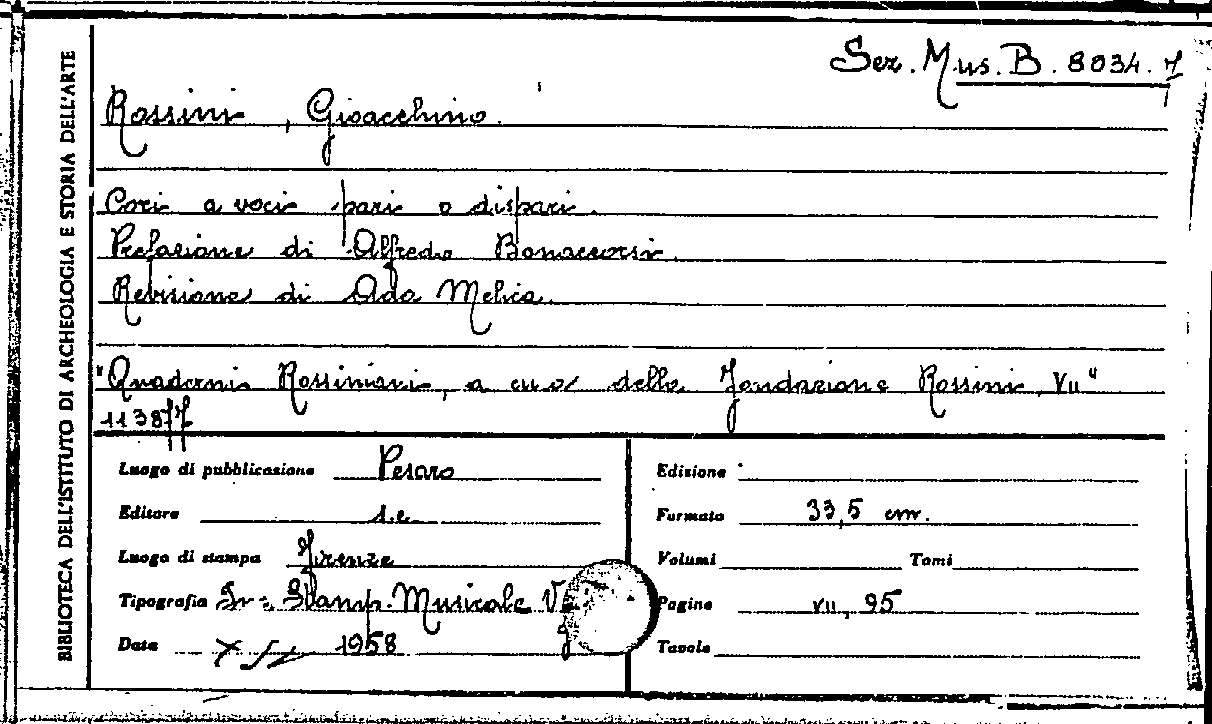 BIBLIOTECA DELL'ISTITUTO DI ARCHEOLOGIA E STORIA DELL'ARTE
Sez. Mus. B. 8034.7
Rossini, Gioacchino.
Cori a voci pari o dispari.
Prefazione di Alfredo Bonaccorsi.
Revisione di Ada Melica.
"Quaderni Rossiniani, a cura della Fondazione Rossini, VII"
113877
Luogo di pubblicazione Pesaro
Editore s.e.
Luogo di stampa Firenze
Tipografia Stamp. Musicale
Data 1958
Edizione
Formato 33,5 cm.
Volumi Tomi
Pagine VII, 95
Tavole